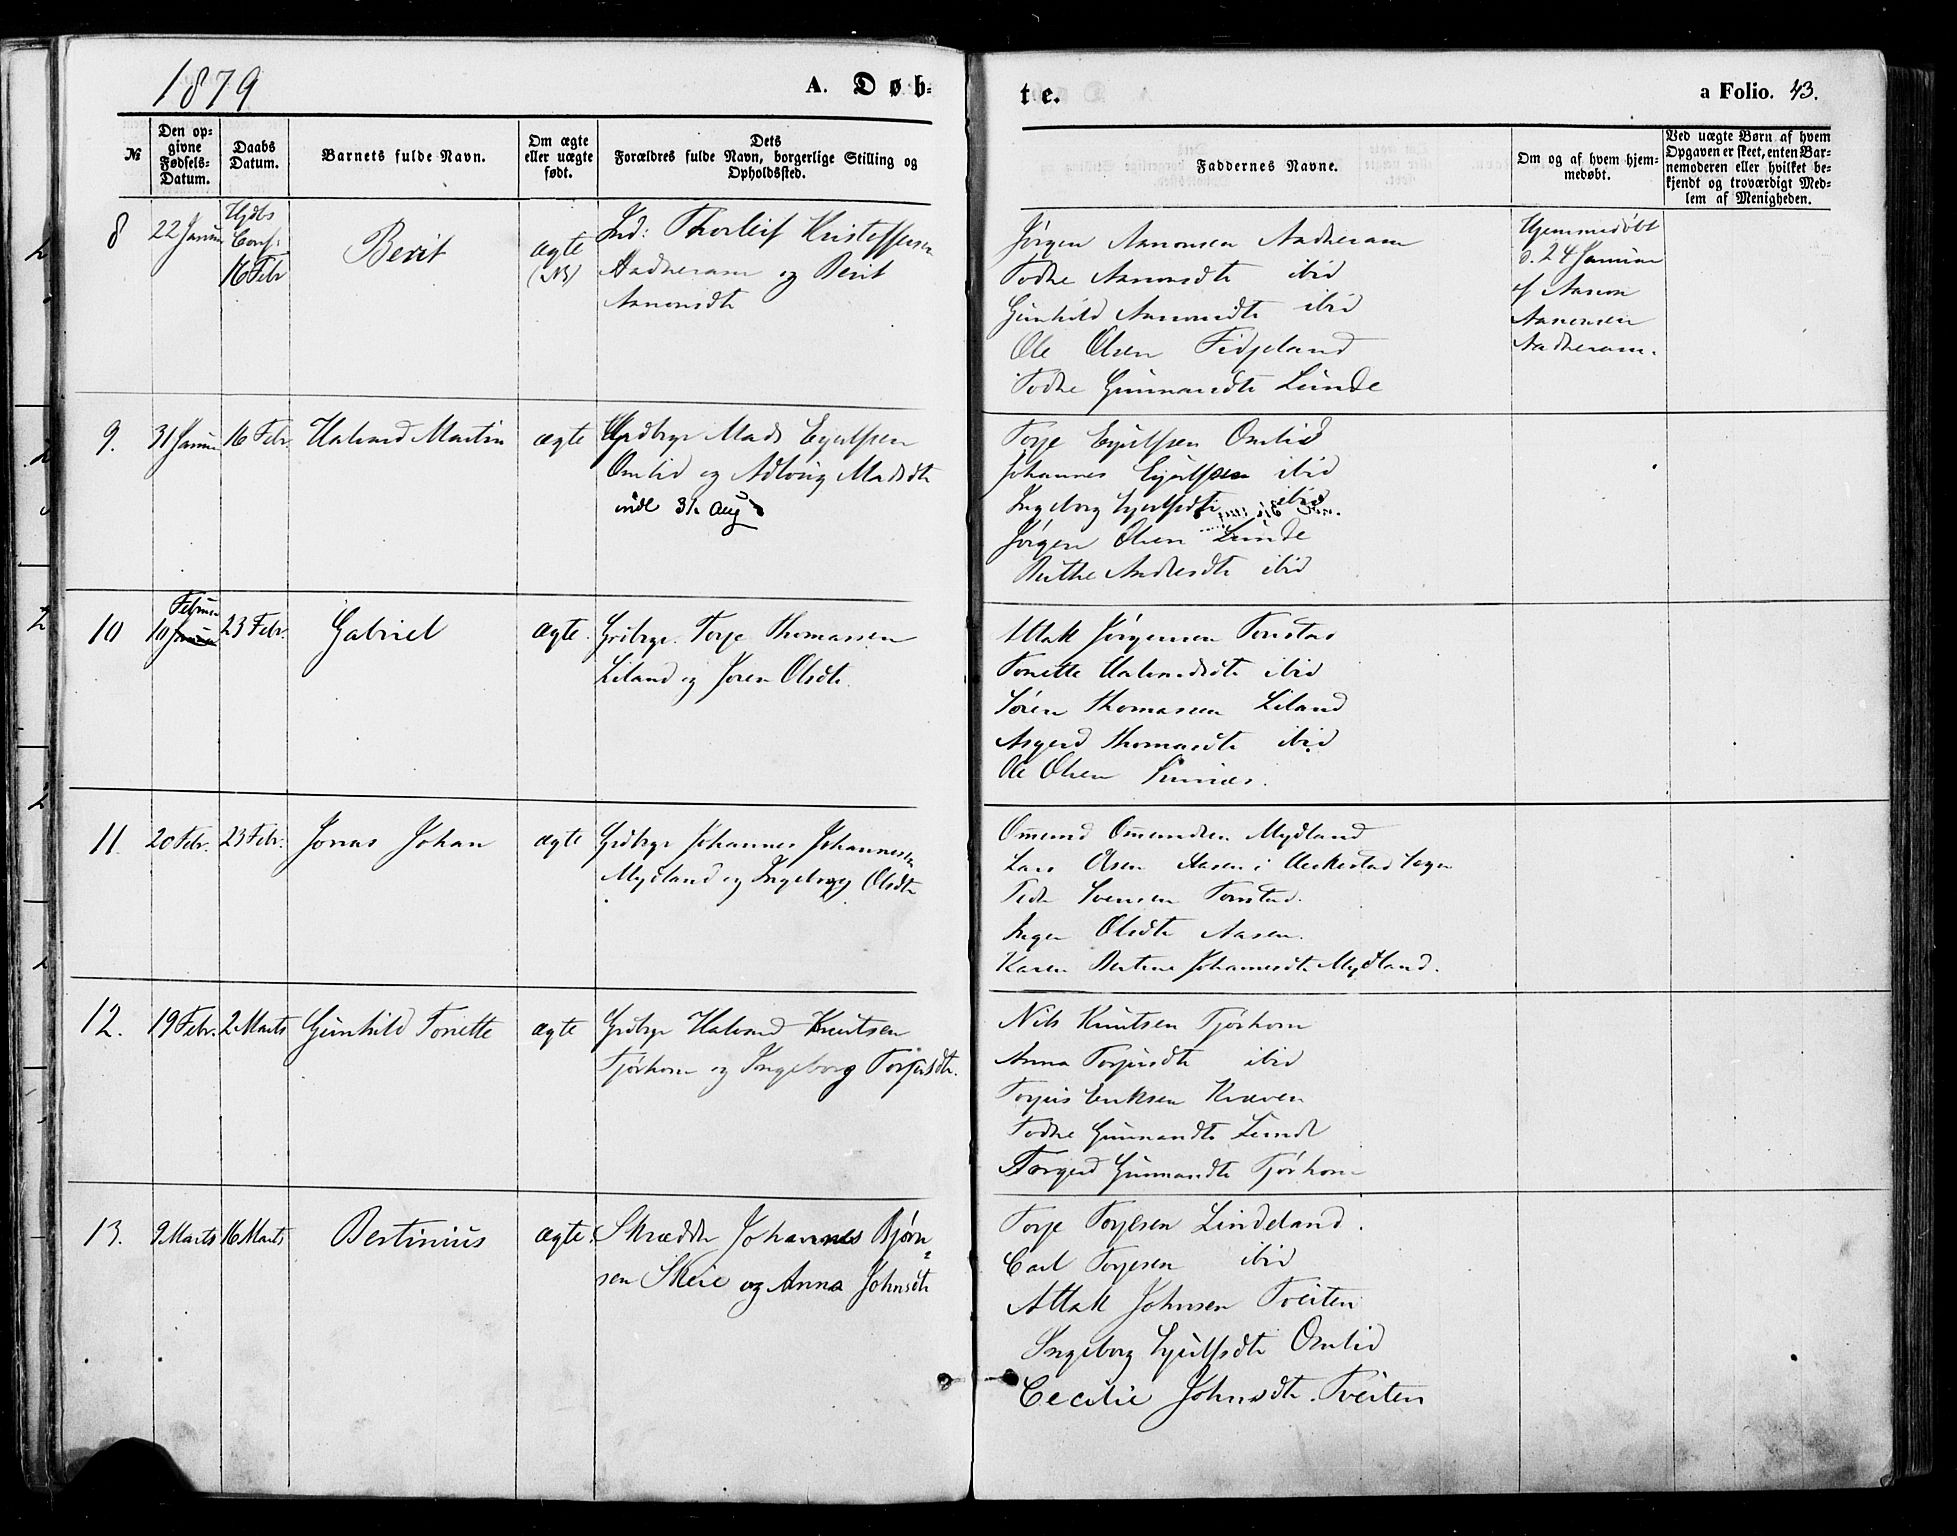 1879
A. Døb-
te.
a Folio. 43.
№
Den op-
givne
Fødsels-
Datum.
Daabs
Datum.
Barnets fulde Navn.
Om ægte
eller uægte
født.
Dets
Forældres fulde Navn, borgerlige Stilling og
Opholdssted.
Faddernes Navne.
Om og af hvem hjem-
medøbt.
Ved uægte Børn af hvem
Opgaven er skeet, enten Bar-
nemoderen eller hvilket be-
kjendt og troværdigt Med-
lem af Menigheden.
8
22 Januar
Hjdbs
Conf:
16 Febr
Berit
ægte
(NB)
Ind: Thorleif Kristoffersen
Aadneram og Berit
Aanonsdt
Jørgen Aanonsen Aadneram
Todne Aanonsdt ibid
Gunhild Aanonsdt ibid
Ole Olsen Fidjeland
Todne Gunnarsdt Lunde
Hjemmedøbt
d. 24 Januar
af Aanon
Aanensen
Aadneram.
9.
31 Januar
16 Febr.
Halvard Martin
ægte
Grdbrgr Mads Ejulfsen
Omlid og Adloug Madsdt
indl 31 Aug
Torje Ejulfsen Omlid
Johannes Ejulfsen ibid
Ingeborg Ejulfsdt ibid
Jørgen Olsen Lunde
Berthe Andersdt ibid
10
Februar
10 Januar
23 Febr.
Gabriel
ægte.
Grdbrgr. Torje Thomassen
Liland og Joren Olsdt.
Attak Jørgensen Tonstad
Tonette Halvardsdt ibid
Søren Thomassen Liland
Asgerd Thomasdt ibid
Ole Olsen Sinnes.
11.
20 Febr.
23 Febr.
Jonas Johan
ægte
Grdbrgr Johannes Johannessen
Mydland og Ingeborg Olsdt
Omund Omundsen Mydland
Lars Olsen Aasen i Heskestad Sogn
Peder Svensen Tonstad.
Inger Olsdt Aasen.
Karen Bertine Johannesdt Mydland.
12.
19 Febr.
2 Marts
Gunhild Tonette
ægte
Grdbrgr Halvard Knutsen
Tjørhom og Ingeborg Torjusdt.
Nils Knutsen Tjørhom
Anna Torjusdt ibid
Torjus Eriksen Kvæven
Todne Gunnarsdt Lunde
Torgerd Gunnarsdt Tjørhom
13.
9 Marts
16 Marts
Bertinius
ægte.
Skrædder Johannes Bjørn-
sen Skeie og Anna Johnsdt
Torje Torjesen Lindeland.
Carl Torjesen ibid
Attak Johnsen Tveiten
Ingeborg Ejulfsdt Omlid
Cecilie Johnsdt. Tveiten